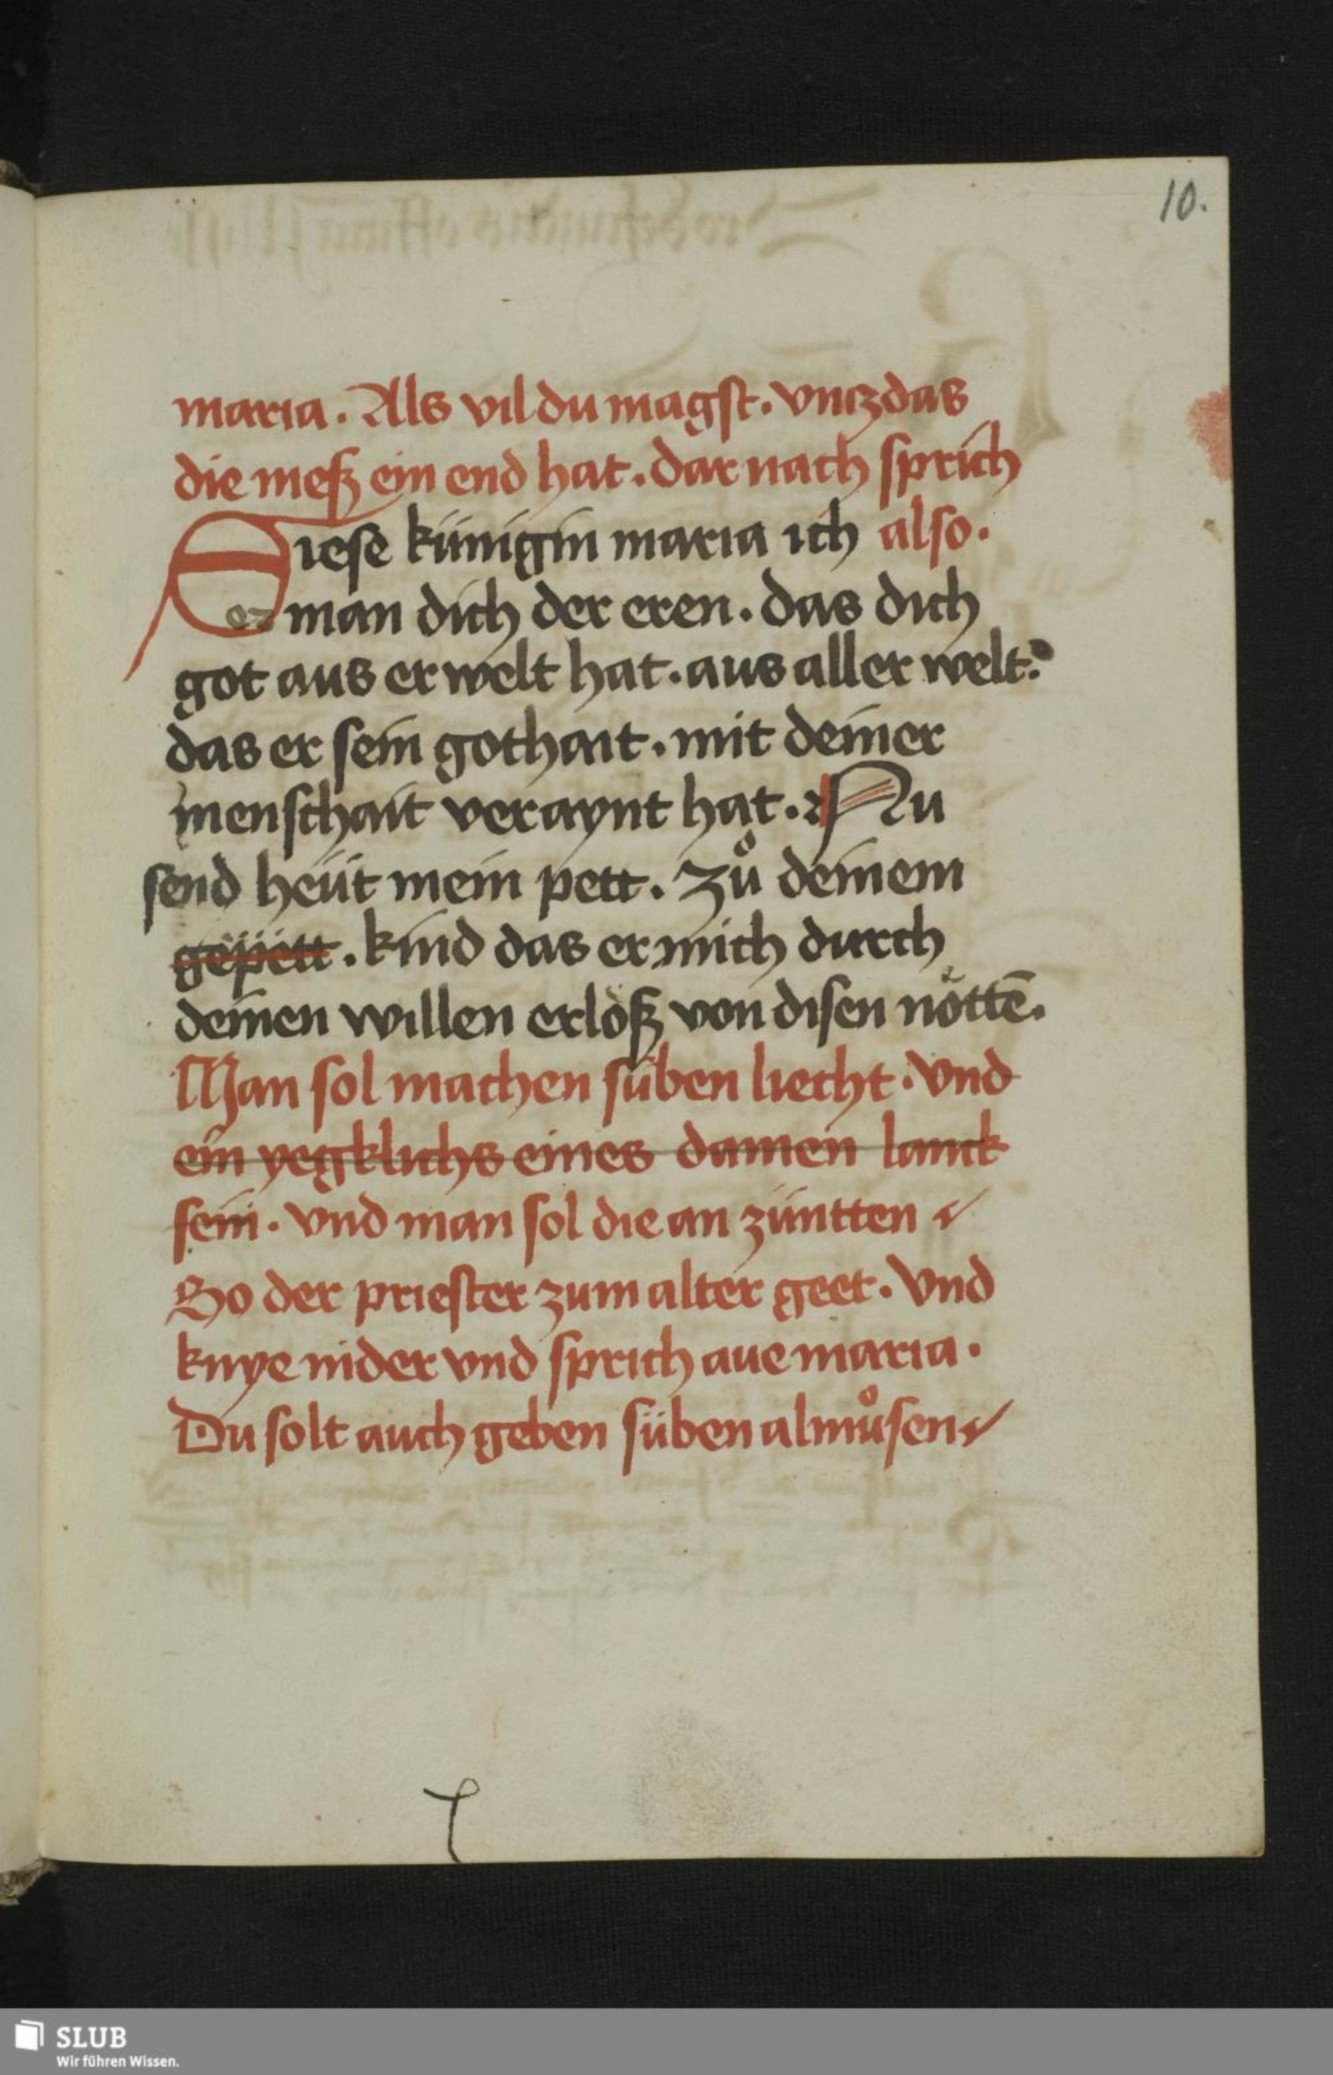 10.
maria. Als vil du magst. vncz das
die meß ein end hat. dar nach sprich
Siese künigin maria ich also.
man dich der eren. das dich
got aus er welt hat. aus aller welt.
das er sein gothait. mit deiner
menschait veraynt hat. Nu
send heüt mein pett. Zů deinem
gepett. kind das er mich durch
deinen willen erlöß von disen nöttē.
Man sol machen süben liecht. vnd
ein yegklichs eines damen lanck
sein. vnd man sol die an züntten
So der priester zum alter geet. Vnd
knye nider vnd sprich aue maria.
Du solt auch geben süben almůsen
SLUB
Wir führen Wissen.